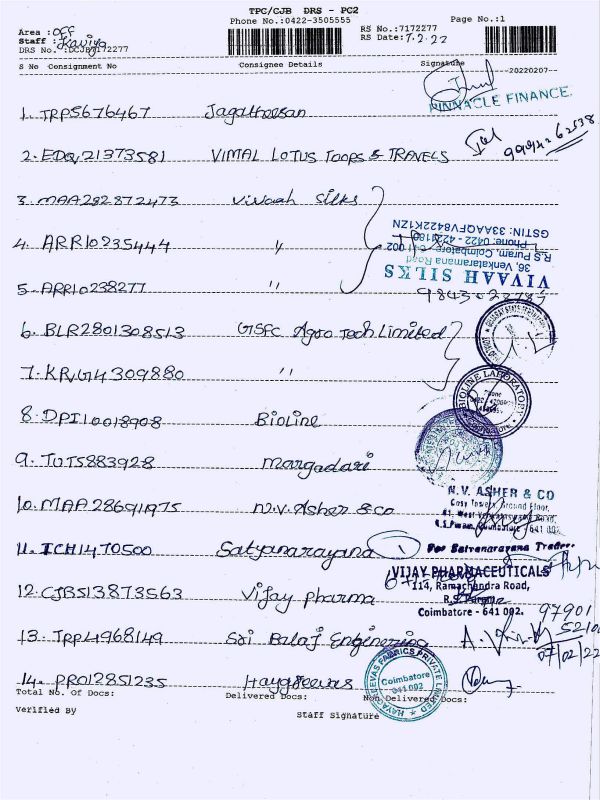 TPC/CJB DRS - PC2
Phone No.:0422-3505555
Page No.:1
Area : OFF
RS No.:7172277
Staff : Kaviya
RS Date: 7.2.22
DRS No.:DCJB7172277
S No Consignment No Consignee Details Signature
20220207
PINNACLE FINANCE.
1. TRP5676467 Jagatheesan
2. EDQ21373581 VIMAL LOTUS TOOPS & TRAVELS
3. MAA282872473 Vivaah Silks
4. ARR10235444 "
VIVAAH SILKS
36, Venkataramana Road
R.S Puram, Coimbatore - 641 002
GSTIN: 33AAQFV8422K1ZN
5. ARR10238277 "
6. BLR2801308513 GSFC Agro Tech Limited
7. KRG14309880 "
BIOLINE LABORATORY
8. DPI10018908 Bioline
9. TUT5883928 Margadari
10. MAA28691975 N.V. Asher & co
N.V. ASHER & CO
11. ICH1470500 Satyanarayana
For Satyanarayana Traders
12. CJB513873563 Vijay pharma
VIJAY PHARMACEUTICALS
114, Ramachandra Road,
R.S. Puram
Coimbatore - 641 002.
97901
13. TRP4968149 Sri Balaj Enginering
07/02/22
14. PRO12851235 Haygreevas
HAYAGREEVAS FABRICS PRIVATE LIMITED
Coimbatore
641 002.
Total No. Of Docs: Delivered Docs: Non Delivered Docs:
Verified By
Staff Signature